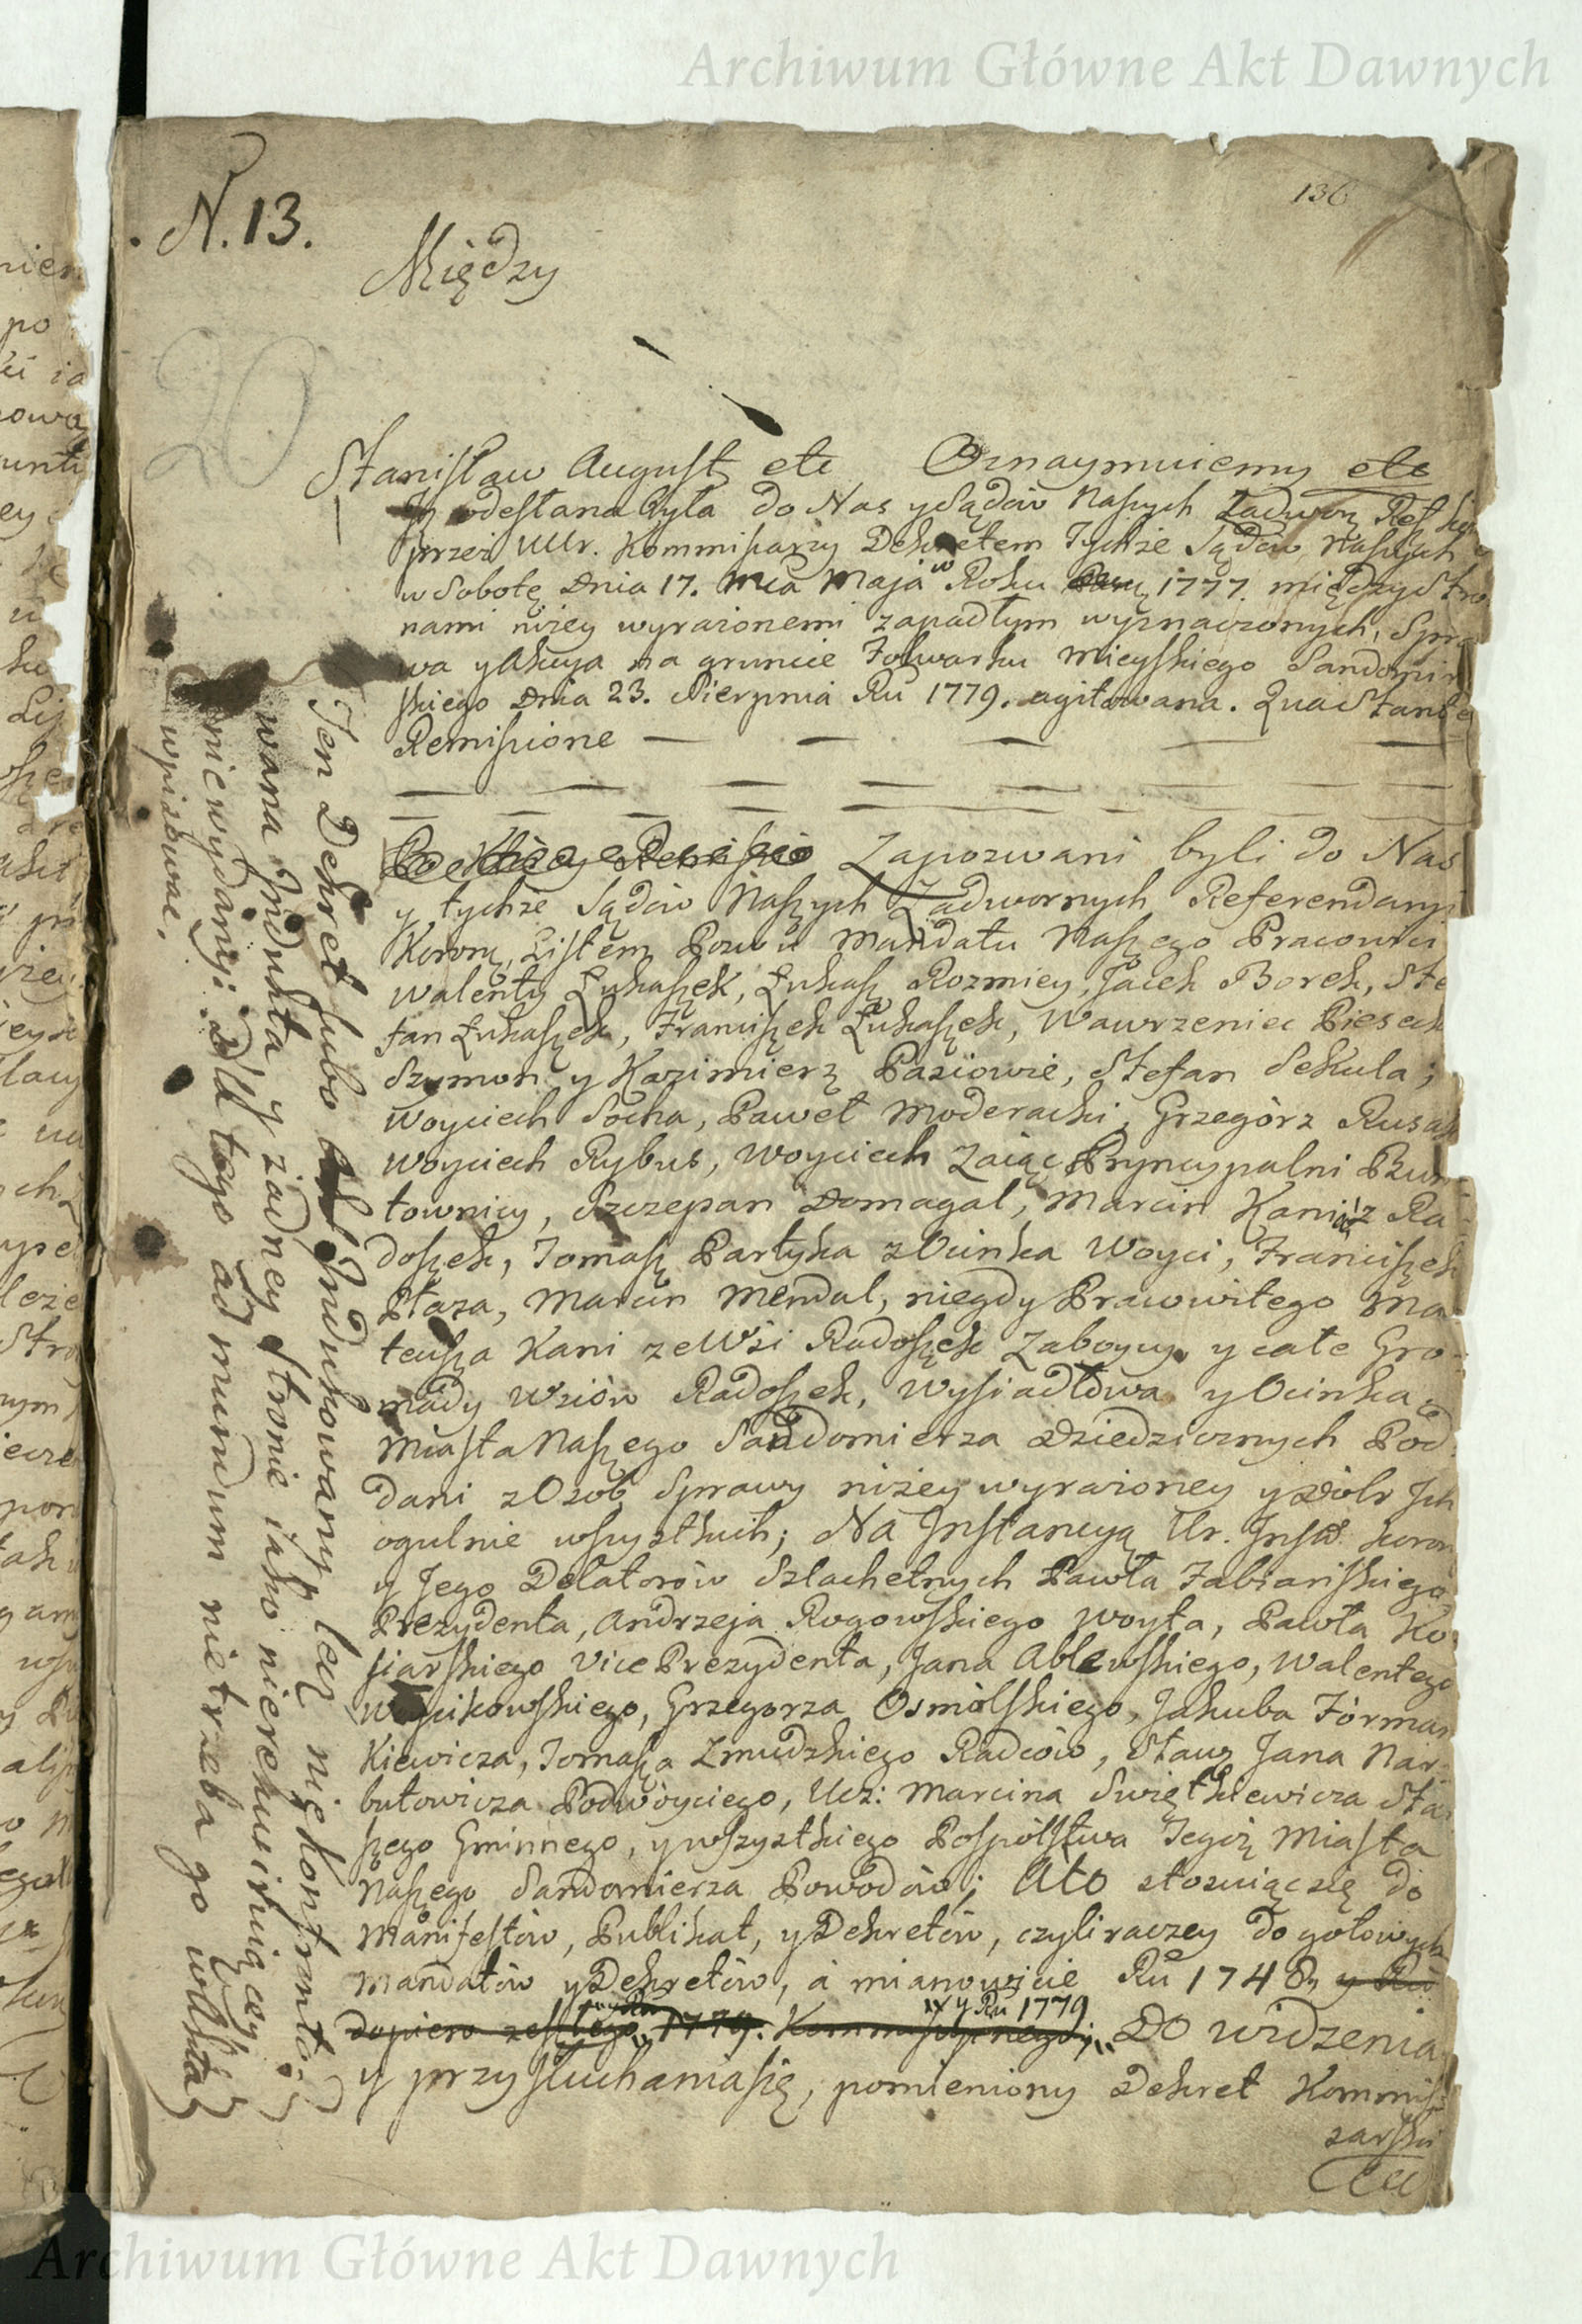 Archiwum Główne Akt Dawnych
N. 13.
136
Między
20
Stanisław August etc Oznaymuiemy etc
Iż odesłana była do Nas y Sądów Naszych Zadwor: Ref:
przez UUr. Kommisarzy Dekretem Tychże Sądów Naszych
w Sobotę Dnia 17. Mca Maja w Roku 1777. między Stro
nami niżey wyrażonemi zapadłym wyznaczonych, Spra
wa y Akcya na gruncie Folwarku mieyskiego Sandomir
skiego Dnia 23. Sierpnia Ru 1779. agitowana. Qua Stante
Remissione
Zapozwani byli do Nas
y tychże Sądów Naszych Zadwornych Referendaryi
Koronn. Listem Pozwu Mandatu Naszego Pracowici
Walenty Łukaszek, Łukasz Rozmiey, Jacek Borek, Ste
fan Łukaszek, Franciszek Łukaszek, Wawrzeniec Piesek
Szymon y Kazimierz Paziowie, Stefan Sekula;
Woyciech Socha, Paweł Moderacki, Grzegorz Rusak
Woyciech Rybus, Woyciech Zaiąc Pryncypalni Bun
townicy, Szczepan Domagał, Marcin Kania z Ra
doszek, Tomasz Partyka z Ocinka Woyci, Franciszek
Płaza, Marcin Mendal, niegdy Prawowitego Ma
teusza Kani ze Wsi Radoszek Zaboycy, y całe Gro
mady Wsiów Radoszek, Wysiadłowa y Ocinka
Miasta Naszego Sandomierza Dziedzicznych Pod
dani z Osób Sprawy niżey wyrażoney y Dóbr Ich
ogulnie wszystkich; Na Instancyą Ur. Inst. koron
y Jego Delatorów Szlachetnych Pawła Fabiańskiego
Prezydenta, Andrzeja Rogowskiego Woyta, Pawła Ko
siarskiego Vice Prezydenta, Jana Ablewskiego, Walentego
Woycikowskiego, Grzegorza Osmolskiego, Jakuba Forman
kiewicza, Tomasza Zmudzkiego Radców, Sław: Jana Nar
butowicza Podwóyciego, Ucz: Marcina Swiętkiewicza Star
szego Gminnego, y wszystkiego Pospólstwa Tegoż Miasta
Naszego Sandomierza Powodów; Ato stosuiąc się do
Manifestów, Publikat, y Dekretów, czyli raczey do gotowych
Mandatów y Dekretów, a mianowicie Ru 1748, y Ru
y Ru 1779
dopiero zeszłego 1779. Kommissyinego; Do widzenia
y przysłuchania się, pomieniony Dekret Kommis
sarski
Ten Dekret lubo był Indukowany lecz nie kontrnto
wana Indukta y żadney stronie iako nierekwiruiącey
niewydany: Dla tego ad mundum nietrzeba go
wpisować.
Archiwum Główne Akt Dawnych